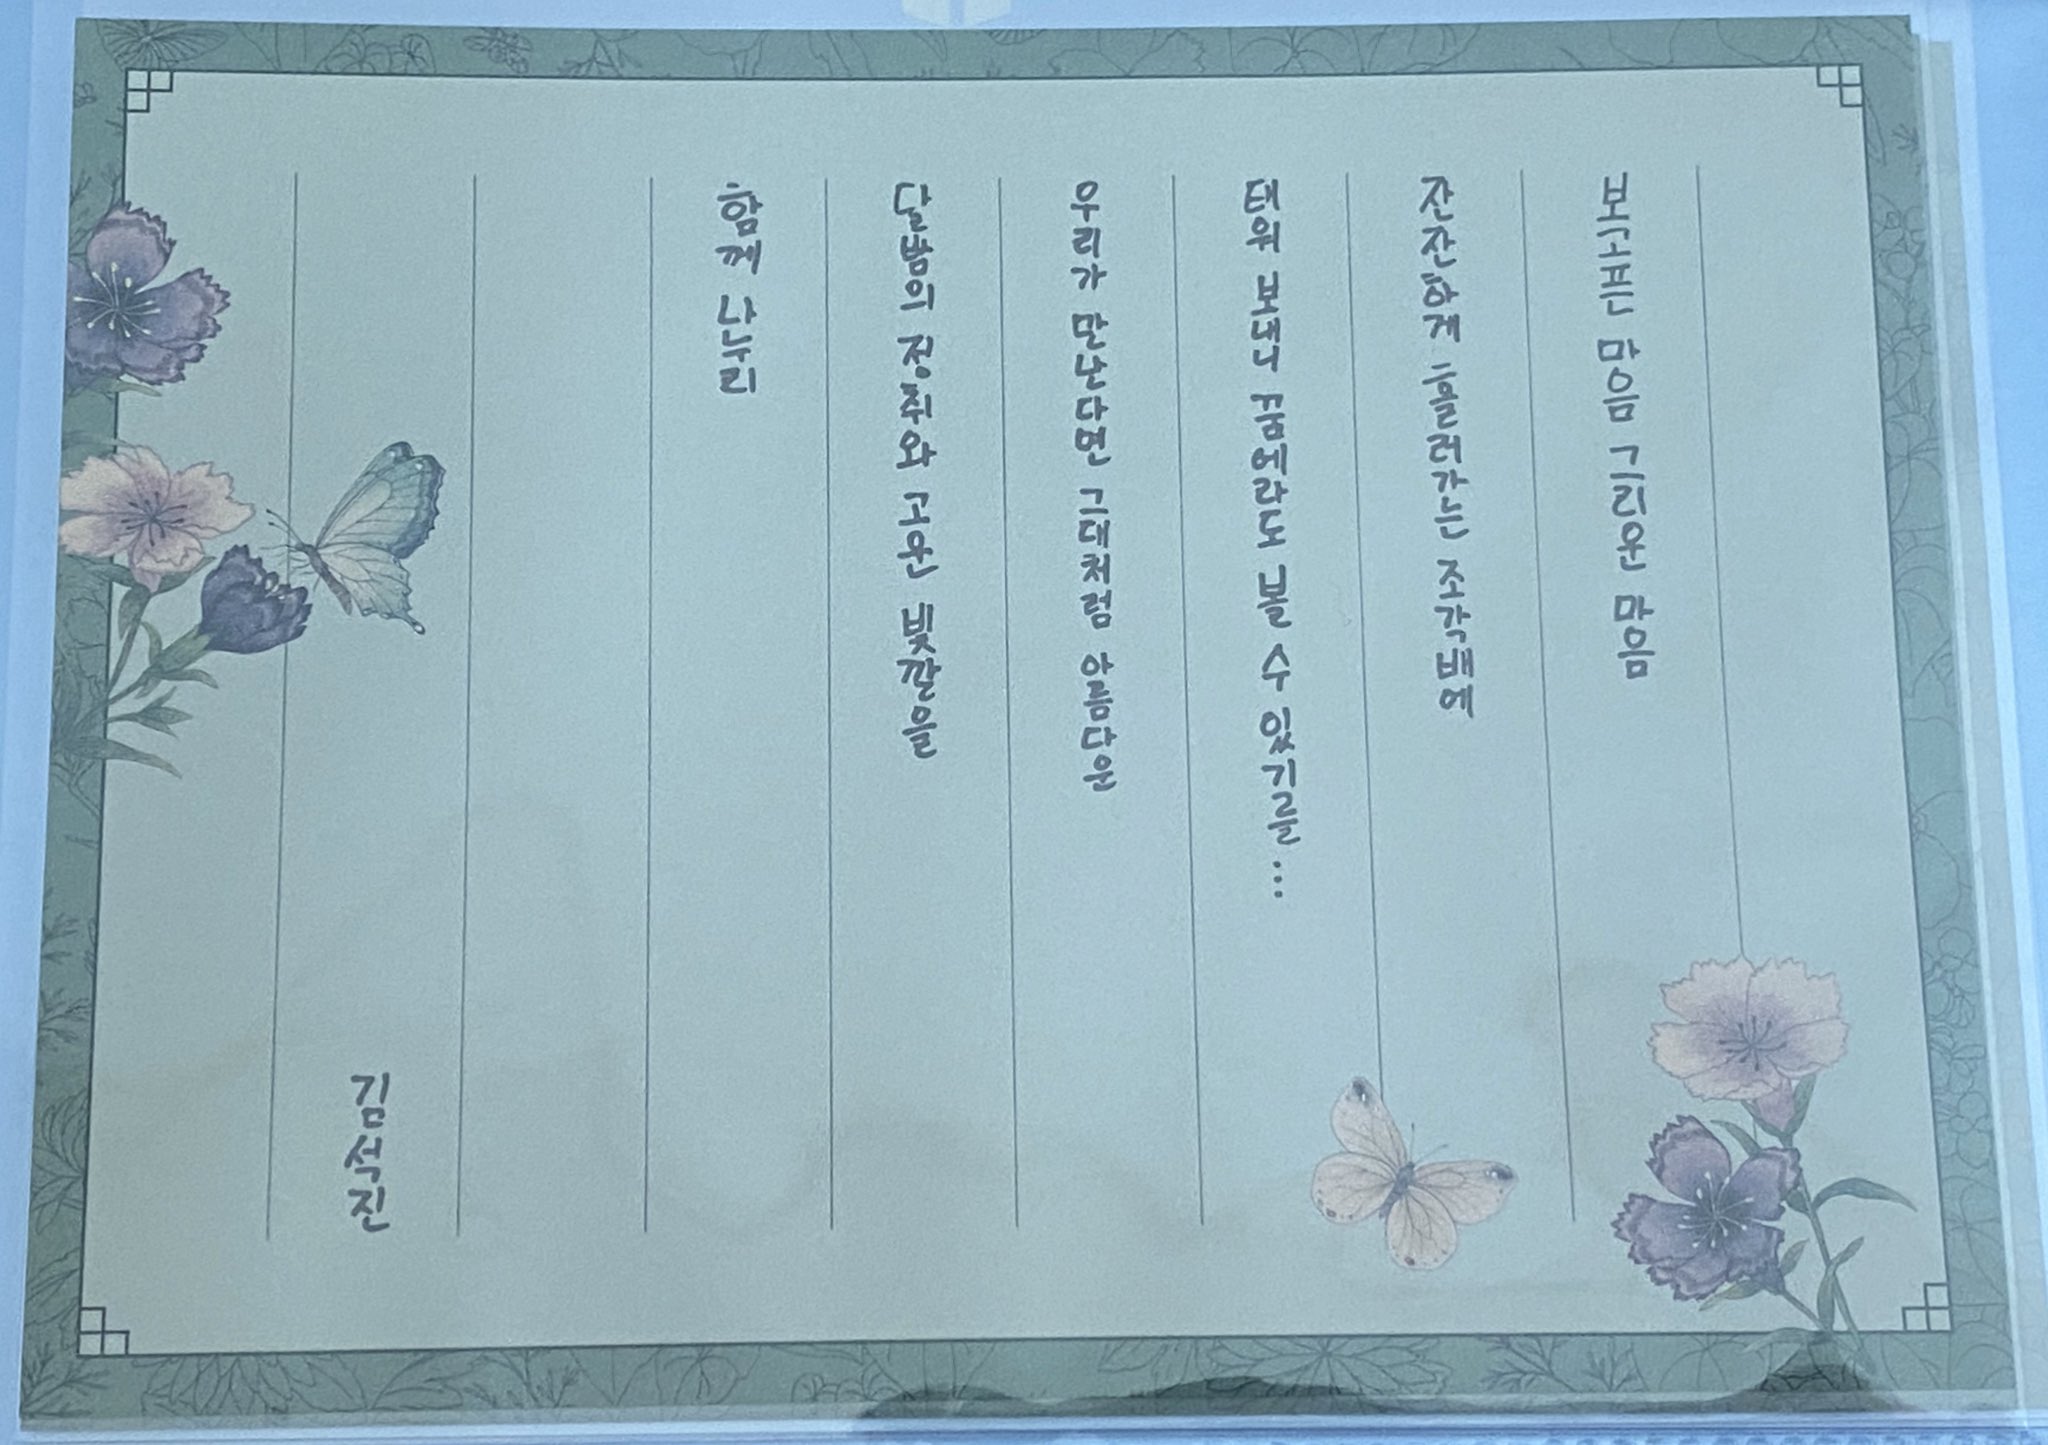 보고픈 마음 그리운 마음
잔잔하게 흘러가는 조각배에
태워 보내니 꿈에라도 볼 수 있기를...
우리가 만난다면 그대처럼 아름다운
달밤의 정취와 고운 빛깔을
함께 나누리
김석진